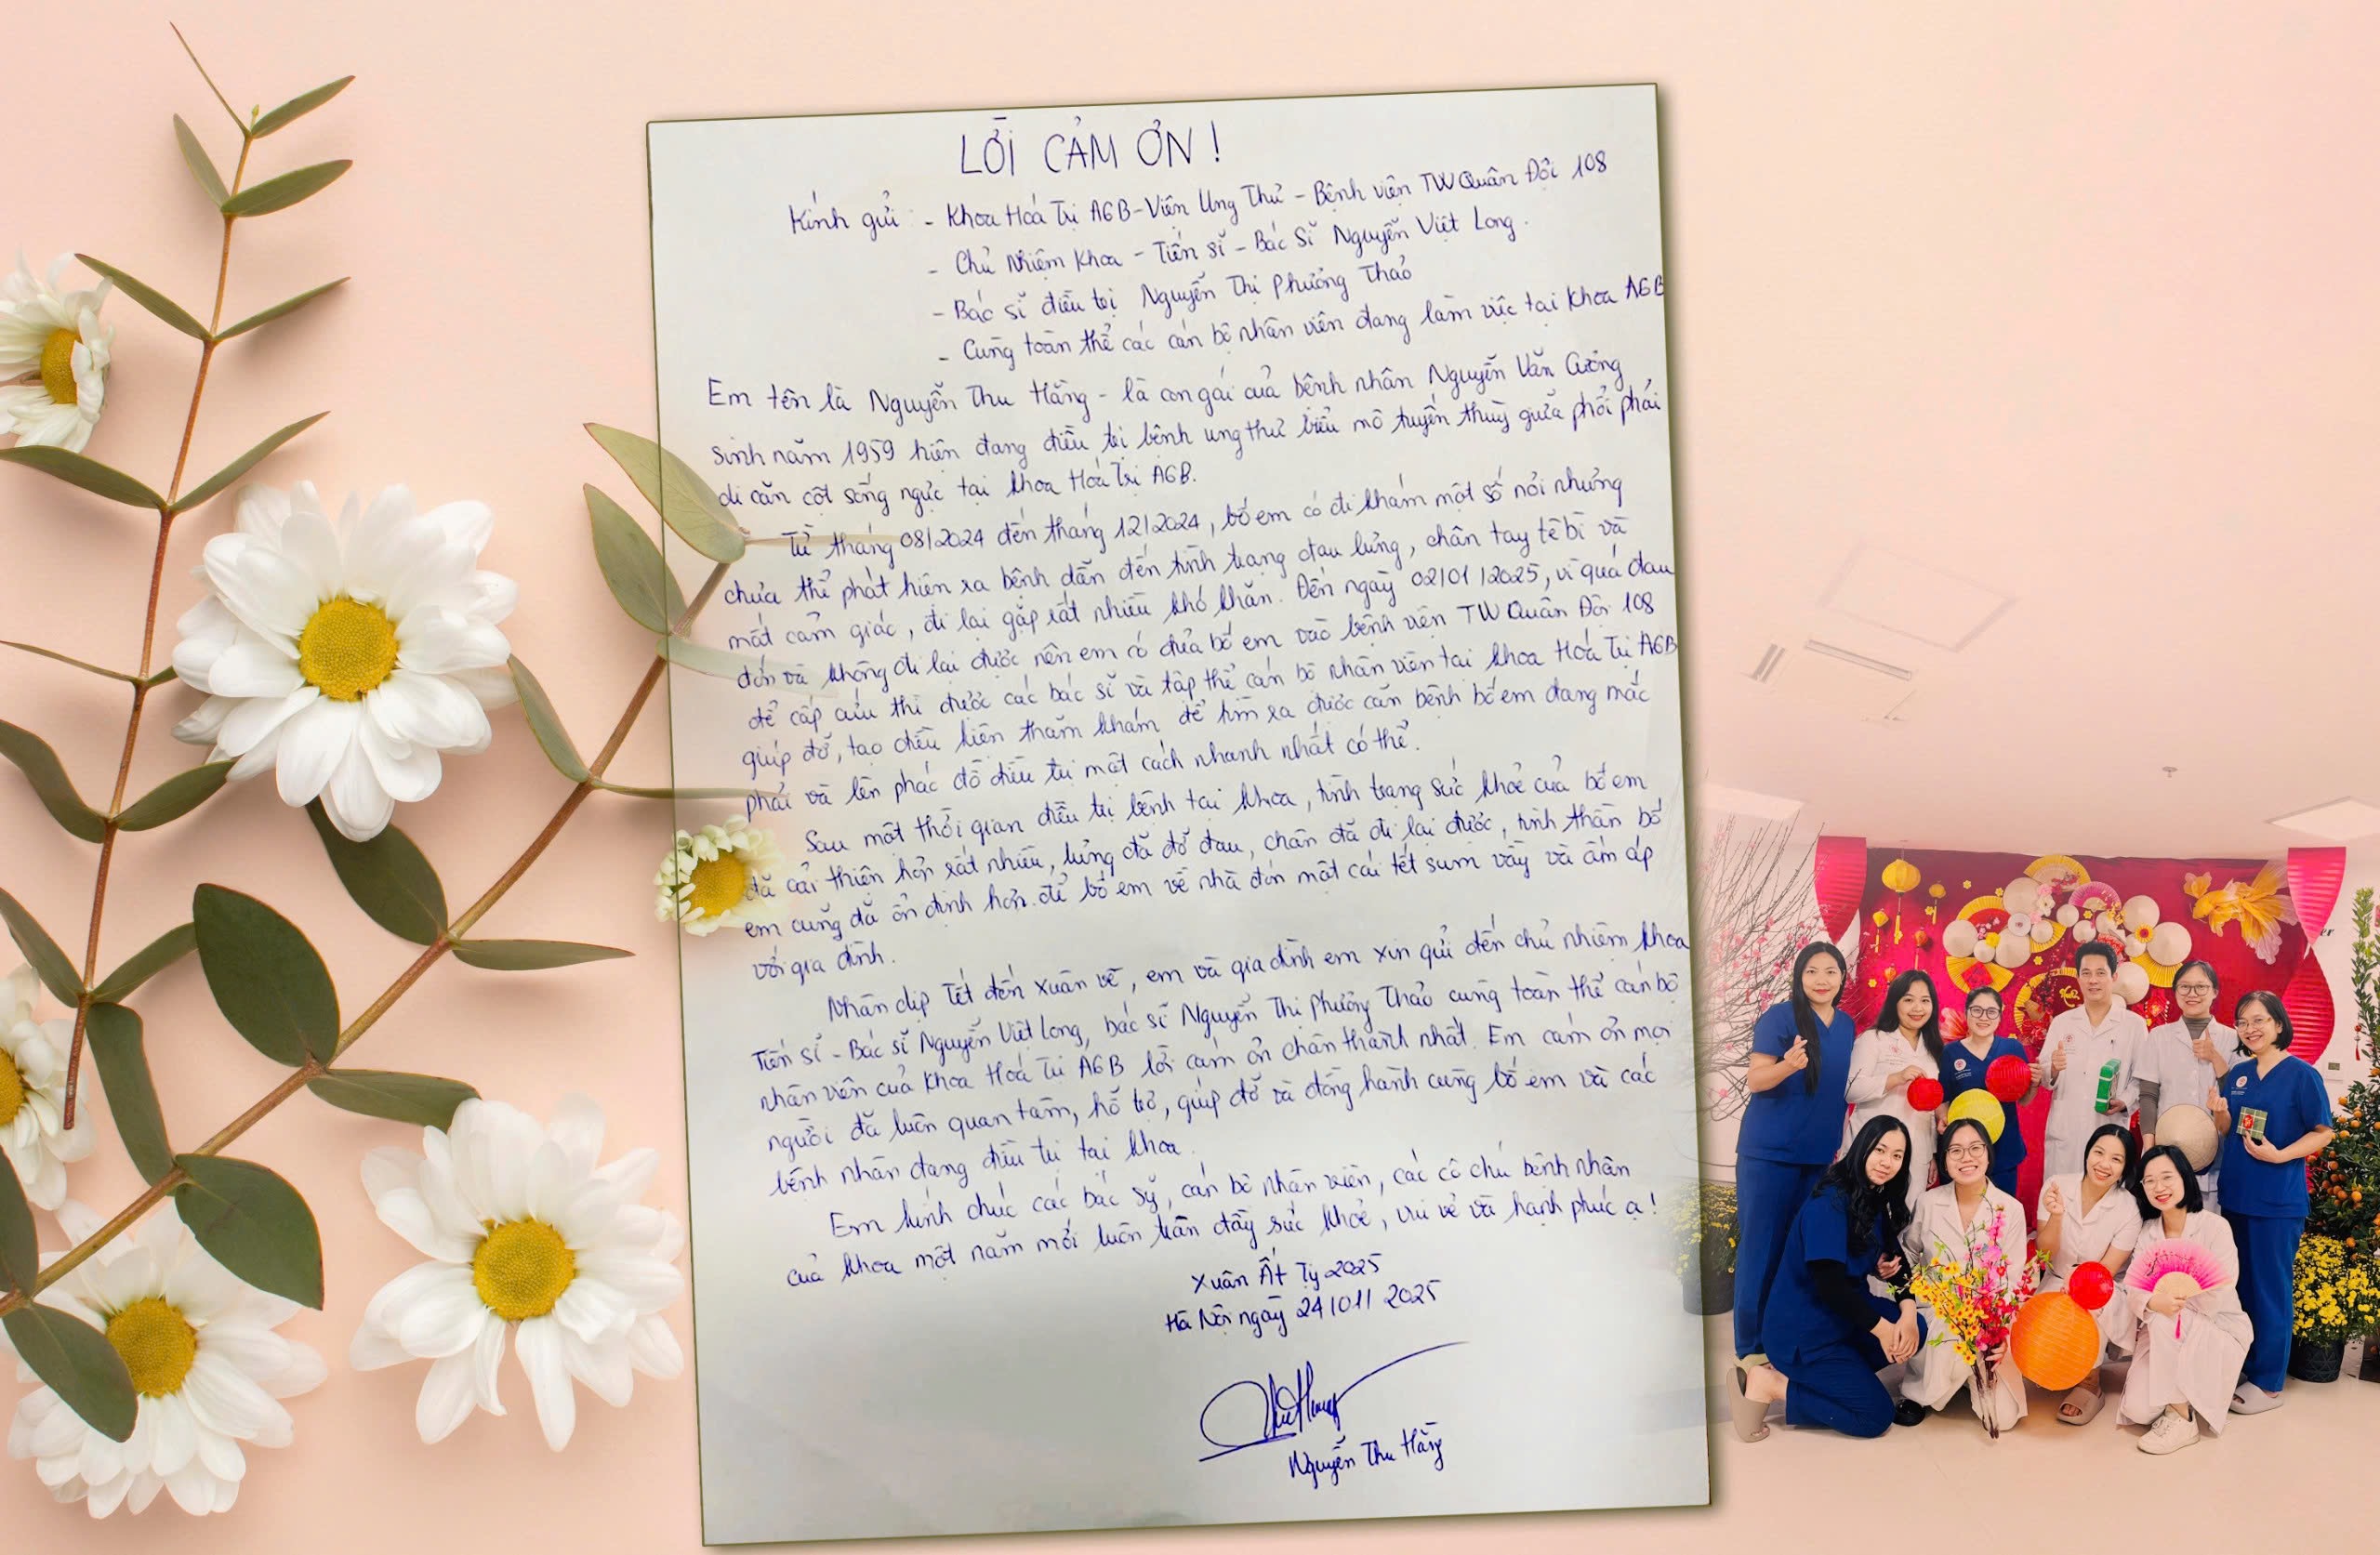 LỜI CẢM ƠN !
Kính gửi : - Khoa Hoá Trị A6B - Viện Ung Thư - Bệnh viện TW Quân Đội 108
- Chủ Nhiệm Khoa - Tiến sĩ - Bác Sĩ Nguyễn Việt Long.
- Bác sĩ điều trị Nguyễn Thị Phương Thảo
- Cùng toàn thể các cán bộ nhân viên đang làm việc tại Khoa A6B
Em tên là Nguyễn Thu Hằng - là con gái của bệnh nhân Nguyễn Văn Cường
sinh năm 1959 hiện đang điều trị bệnh ung thư biểu mô tuyến thuỳ giữa phổi phải
di căn cột sống ngực tại khoa Hoá Trị A6B.
Từ tháng 08/2024 đến tháng 12/2024, bố em có đi khám một số nơi nhưng
chưa thể phát hiện ra bệnh dẫn đến tình trạng đau lưng, chân tay tê bì và
mất cảm giác, đi lại gặp rất nhiều khó khăn. Đến ngày 02/01/2025, vì quá đau
đớn và không đi lại được nên em có đưa bố em vào bệnh viện TW Quân Đội 108
để cấp cứu thì được các bác sĩ và tập thể cán bộ nhân viên tại khoa Hoá Trị A6B
giúp đỡ, tạo điều kiện thăm khám để tìm ra được căn bệnh bố em đang mắc
phải và lên phác đồ điều trị một cách nhanh nhất có thể.
Sau một thời gian điều trị bệnh tại khoa, tình trạng sức khoẻ của bố em
đã cải thiện hơn rất nhiều, lưng đã đỡ đau, chân đã đi lại được, tinh thần bố
em cũng đã ổn định hơn để bố em về nhà đón một cái tết sum vầy và ấm áp
với gia đình.
Nhân dịp Tết đến xuân về, em và gia đình em xin gửi đến chủ nhiệm khoa
Tiến sĩ - Bác sĩ Nguyễn Việt Long, bác sĩ Nguyễn Thị Phương Thảo cùng toàn thể cán bộ
nhân viên của Khoa Hoá Trị A6B lời cảm ơn chân thành nhất. Em cảm ơn mọi
người đã luôn quan tâm, hỗ trợ, giúp đỡ và đồng hành cùng bố em và các
bệnh nhân đang điều trị tại khoa.
Em kính chúc các bác sỹ, cán bộ nhân viên, các cô chú bệnh nhân
của khoa một năm mới luôn tràn đầy sức khoẻ, vui vẻ và hạnh phúc ạ!
Xuân Ất Tỵ 2025
Hà Nội ngày 24/01/2025
Nguyễn Thu Hằng